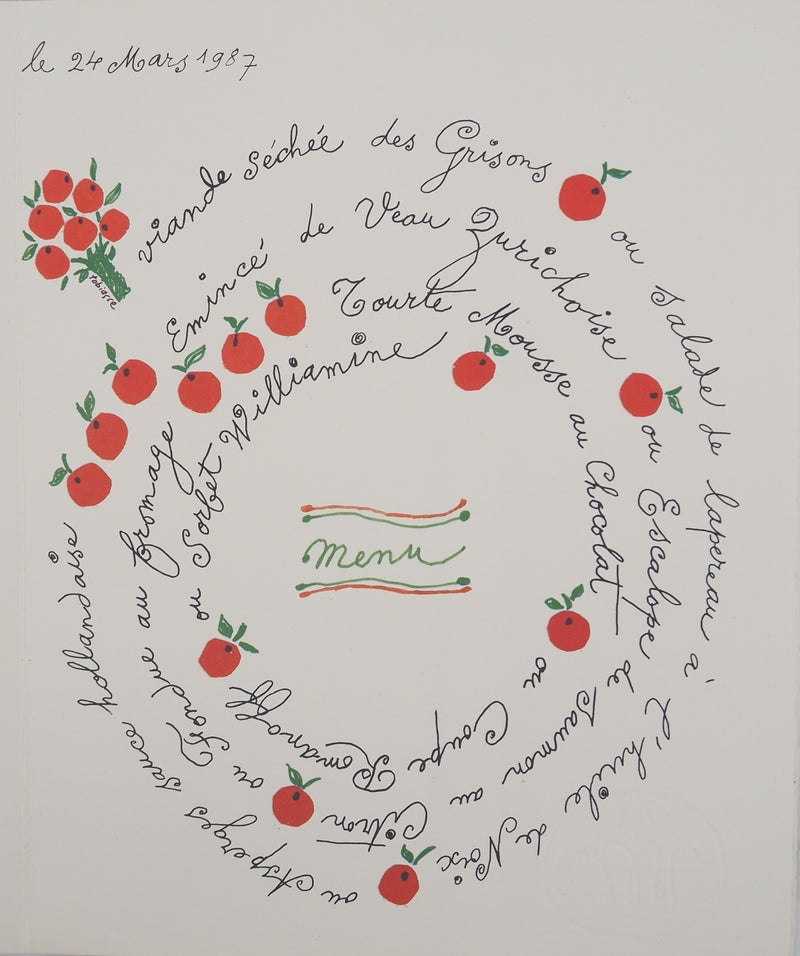 le 24 Mars 1987
viande séchée des Grisons
ou salade de lapereau à l'huile de Noix
ou Asperges sauce hollandaise
Emincé de Veau Zurichoise
ou Escalope de Saumon au Citron
ou Fondue au fromage
Tourte Mousse au Chocolat
ou Coupe Romanoff
ou Sorbet Williamine
menu
tobiasse